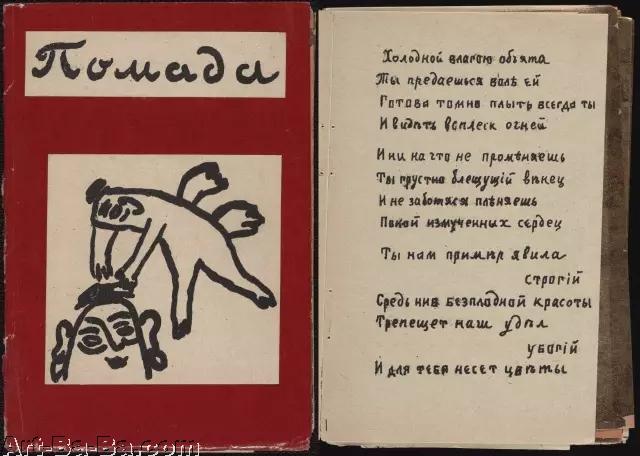 Помада
Холодной влагою объята
Ты предаешься волѣ ей
Готова томно плыть всегда ты
И видѣть всплеск огней
И ни на что не промѣняешь
Ты грустно блещущій вѣнец
И не заботясь плѣняешь
Покой измученных сердец
Ты нам примѣр явила
строгій
Средь нив безплодной красоты
Трепещет наш удѣл
убогій
И для тебя несет цвѣты
Art-Ba-Ba.com
Art-Ba-Ba.com